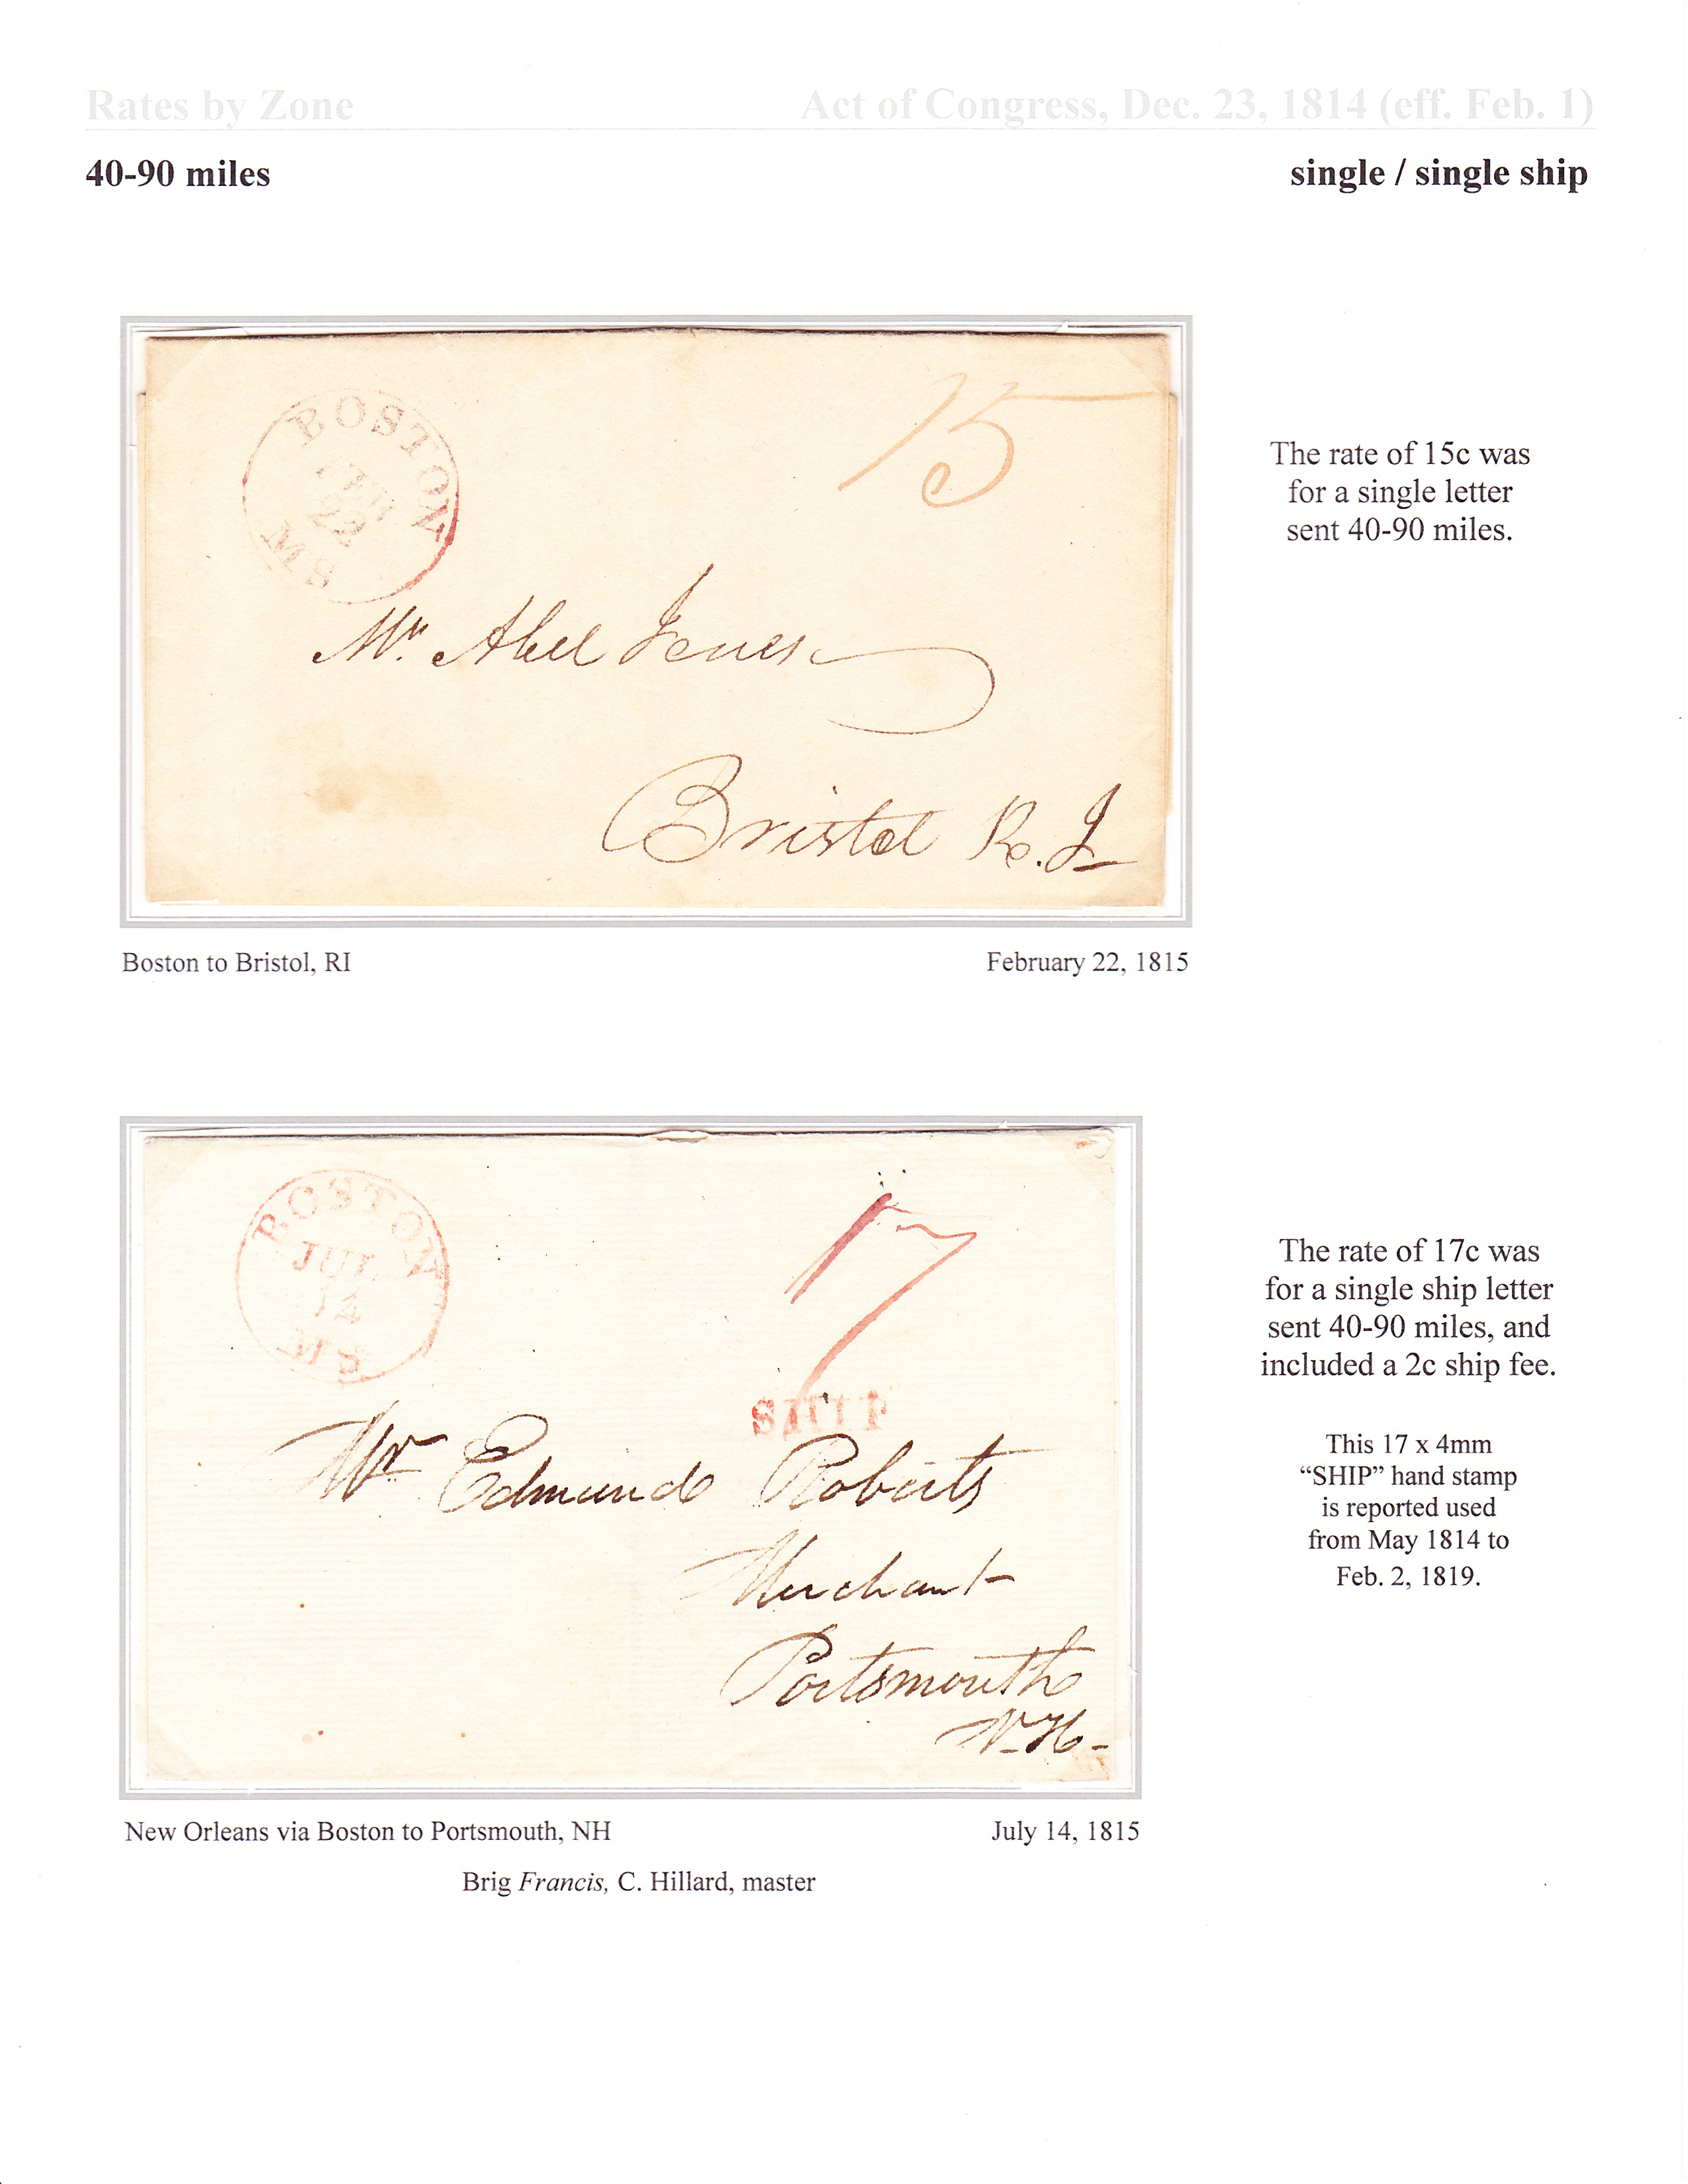 Rates by Zone
Act of Congress, Dec. 23, 1814 (eff. Feb. 1)
40-90 miles
single / single ship
BOSTON
FEB
22
MS
15
Mr. Abel Jones
Bristol R. I
The rate of 15c was
for a single letter
sent 40-90 miles.
Boston to Bristol, RI
February 22, 1815
BOSTON
JUL
14
MS
17
SHIP
Mr Edmund Roberts
Merchant
Portsmouth
N-H-
The rate of 17c was
for a single ship letter
sent 40-90 miles, and
included a 2c ship fee.
This 17 x 4mm
“SHIP” hand stamp
is reported used
from May 1814 to
Feb. 2, 1819.
New Orleans via Boston to Portsmouth, NH
July 14, 1815
Brig Francis, C. Hillard, master